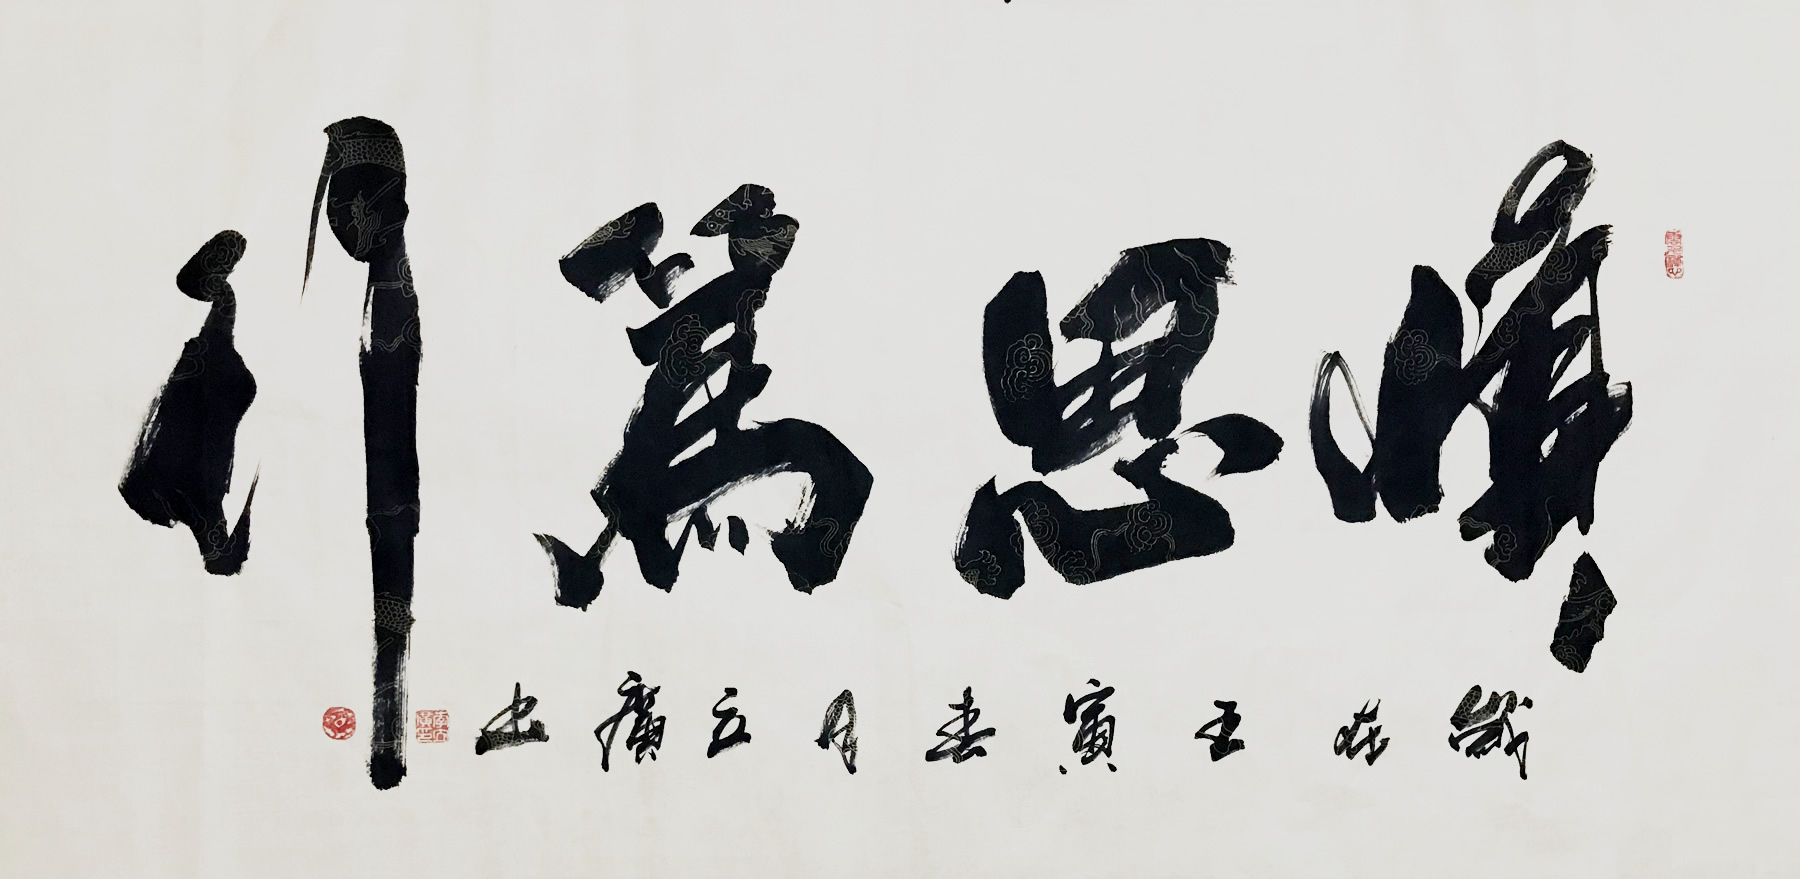 慎思篤行
歲在壬寅春月立廣書